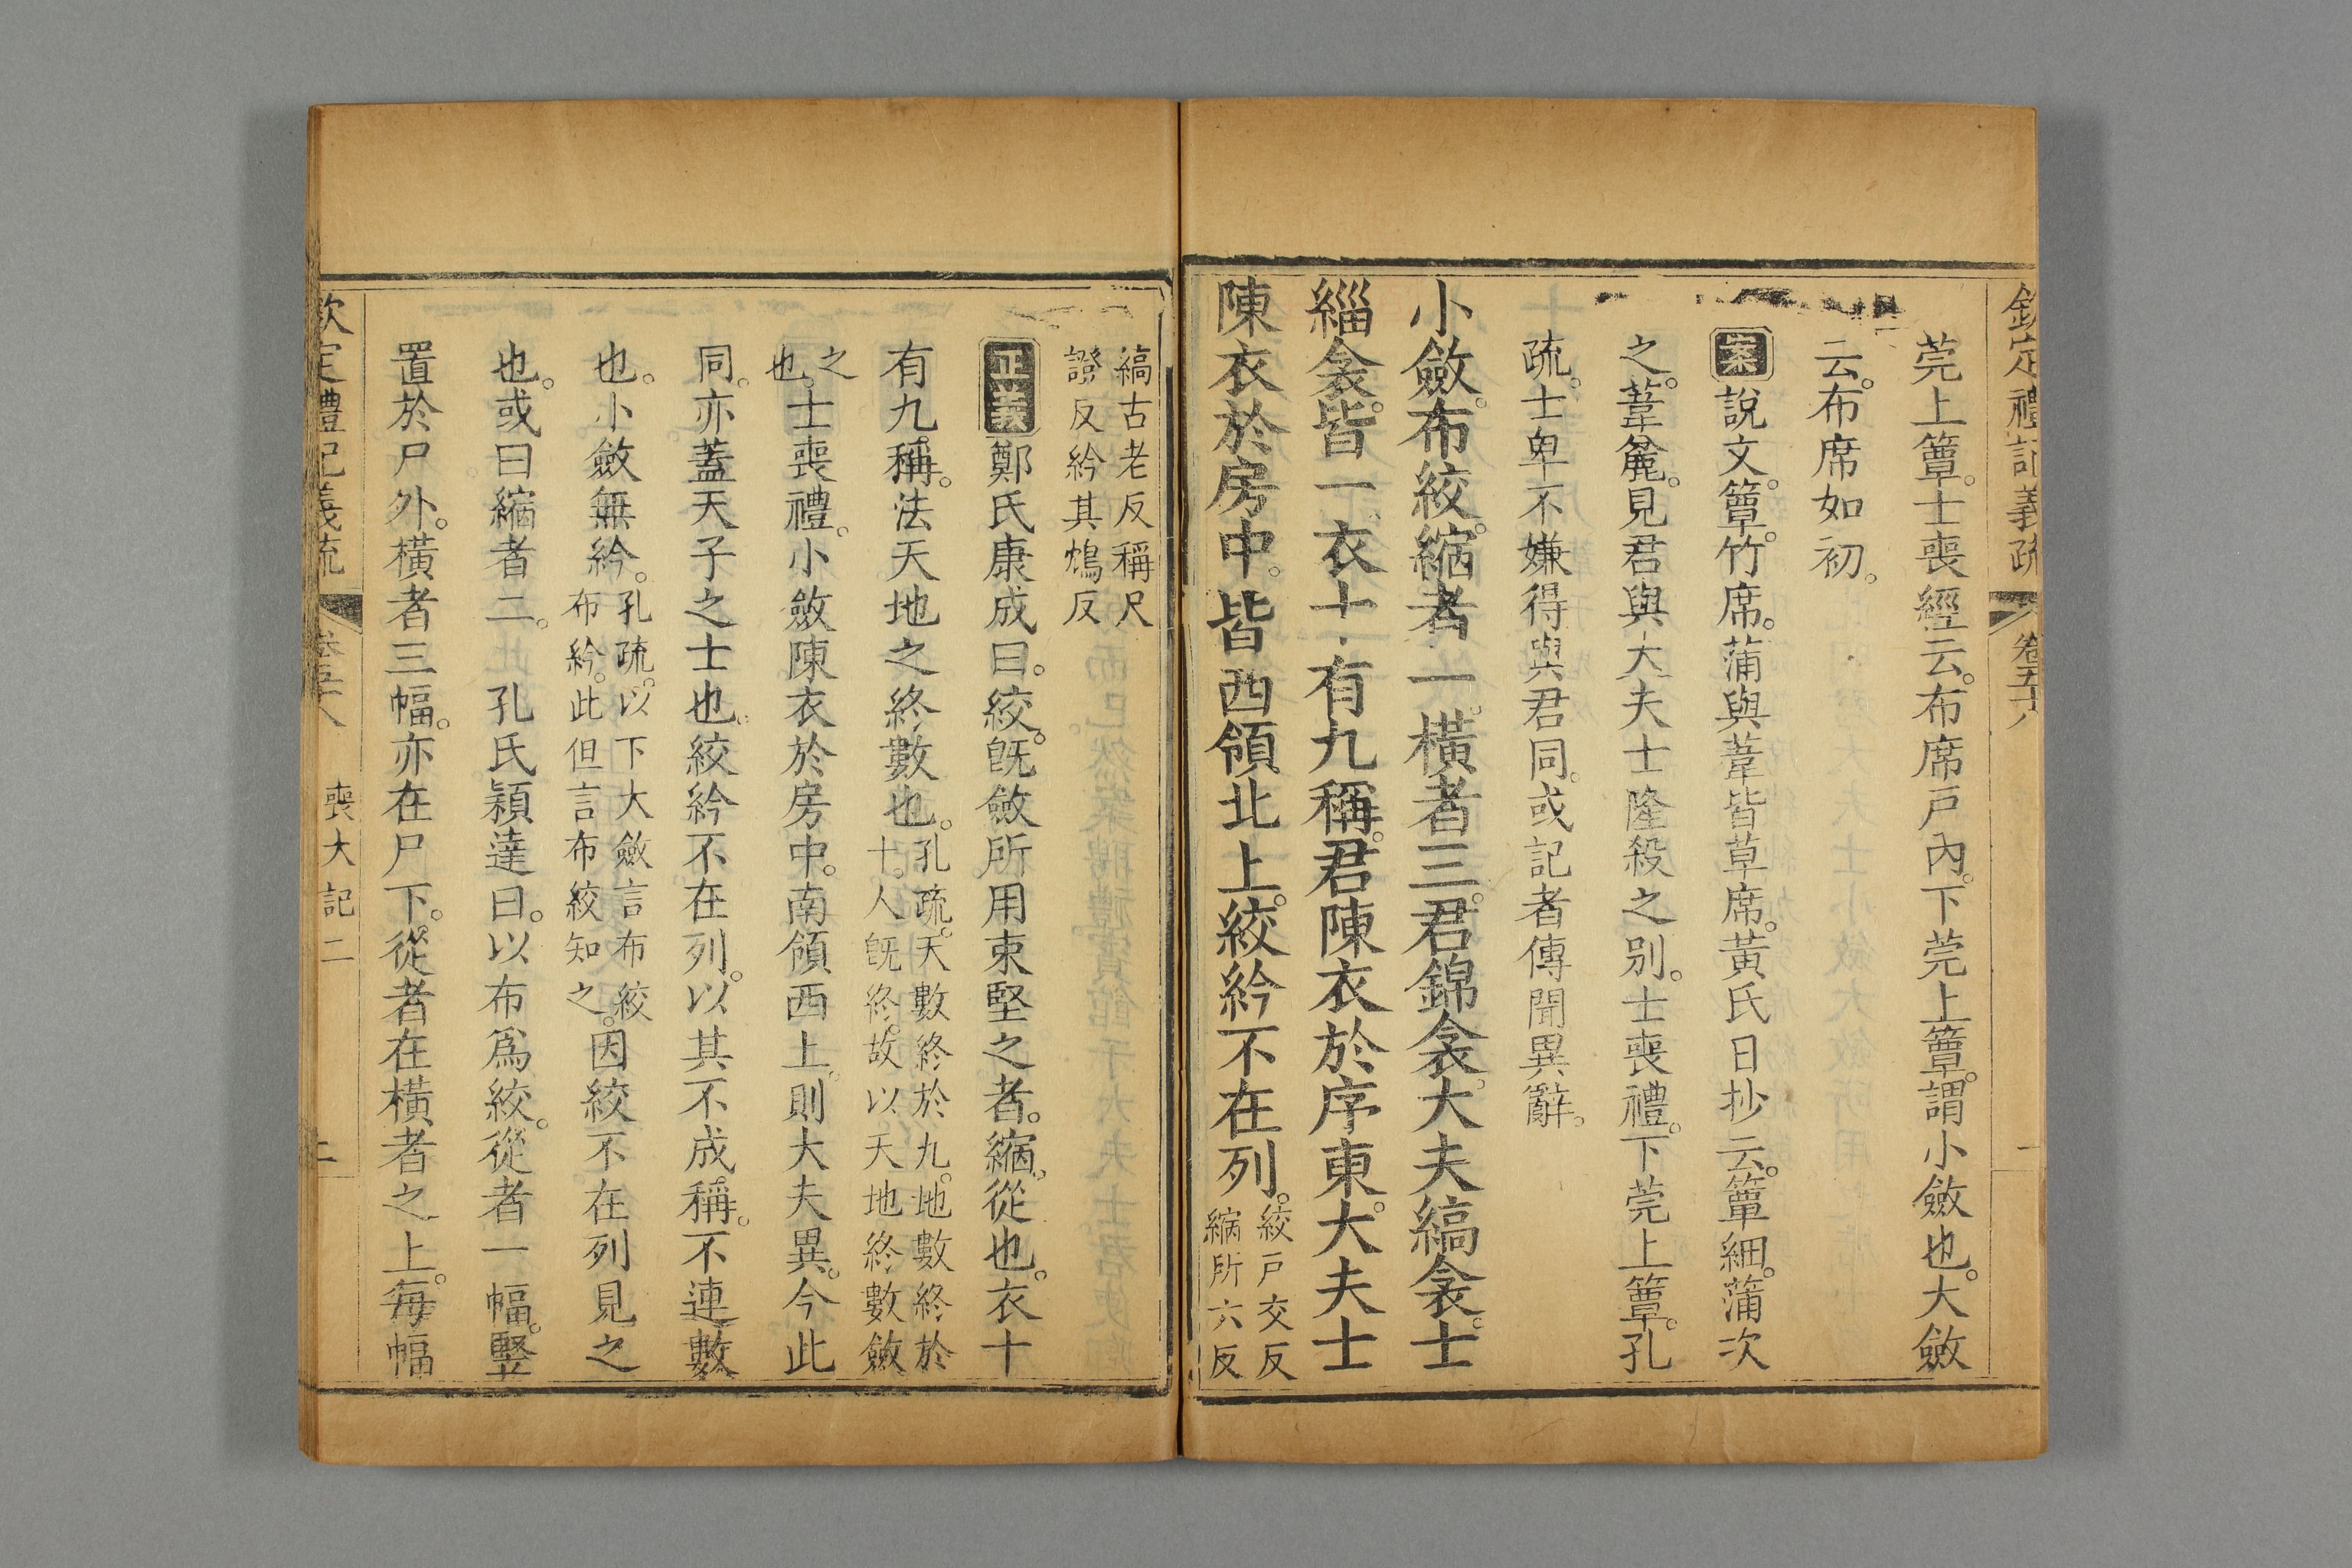 欽定禮記義疏 卷五十八 一
莞上簟。士喪經云。布席戸內。下莞上簟。謂小斂也。大斂
云。布席如初。
案說文。簟。竹席。蒲與葦皆草席。黃氏日抄云。簟細。蒲次
之。葦麄。見君與大夫士隆殺之别。士喪禮。下莞上簟。孔
疏。士卑不嫌得與君同。或記者傳聞異辭。
小斂。布絞。縮者一。橫者三。君錦衾。大夫縞衾。士
緇衾。皆一。衣十有九稱。君陳衣於序東。大夫士
陳衣於房中。皆西領北上。絞紟不在列。絞戸交反
縮所六反
縞古老反稱尺
證反紟其鴆反
正義鄭氏康成曰。絞。旣斂所用束堅之者。縮。從也。衣十
有九稱。法天地之終數也。孔疏。天數終於九。地數終於
十。人旣終。故以天地終數斂
之
也。士喪禮。小斂陳衣於房中。南領西上。則大夫異。今此
同。亦蓋天子之士也。絞紟不在列。以其不成稱。不連數
也。小斂無紟。孔疏。以下大斂言布絞
布紟。此但言布絞知之。因絞不在列見之
也。或曰縮者二。孔氏穎達曰。以布爲絞。從者一幅。竪
置於尸外。橫者三幅。亦在尸下。從者在橫者之上。每幅
欽定禮記義疏 卷五十八 喪大記二 二